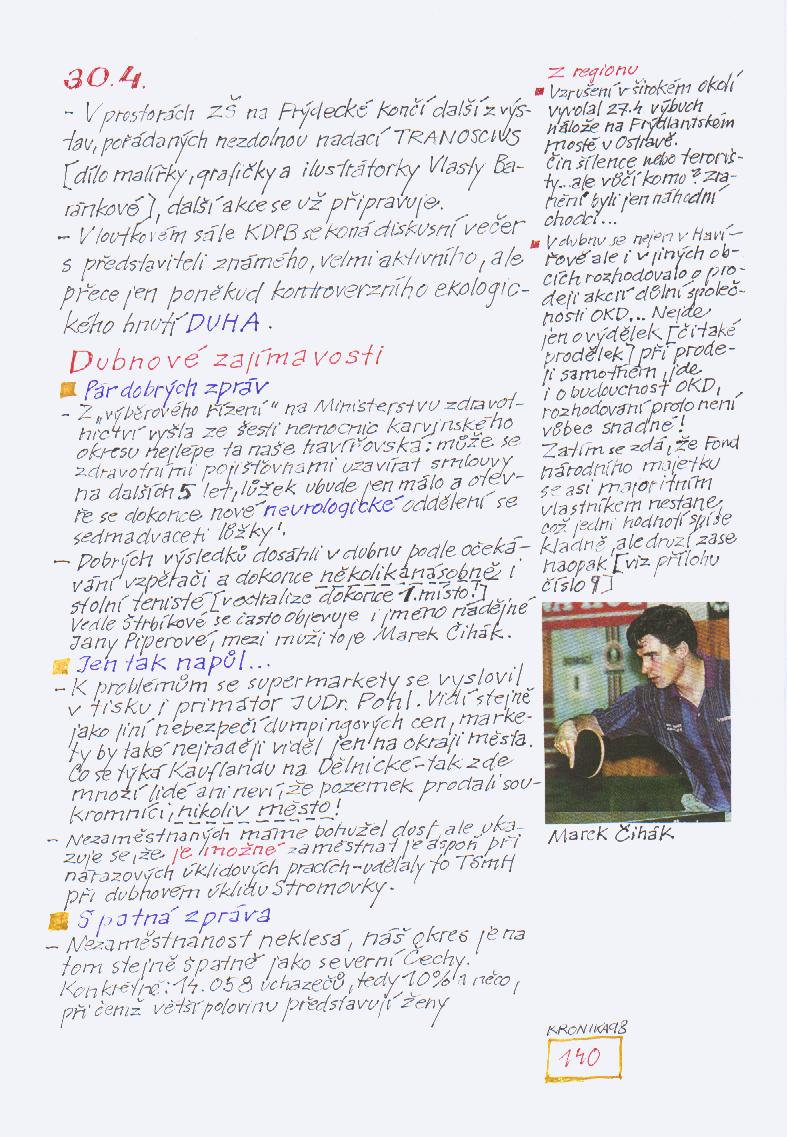 30.4.
- V prostorách ZŠ na Frýdecké končí další z výs-
tav, pořádaných nezdolnou nadací TRANOSCIUS
[dílo malířky, grafičky a ilustrátorky Vlasty Ba-
ránkové], další akce se už připravuje.
- V loutkovém sále KDPB se koná diskusní večer
s představiteli známého, velmi aktivního, ale
přece jen poněkud kontroverzního ekologic-
kého hnutí DUHA.
Dubnové zajímavosti
Pár dobrých zpráv
- Z „výběrového řízení“ na Ministerstvu zdravot-
nictví vyšla ze šesti nemocnic karvinského
okresu nejlépe ta naše havířovská: může se
zdravotními pojišťovnami uzavírat smlouvy
na dalších 5 let, lůžek ubude jen málo a otev-
ře se dokonce nové neurologické oddělení se
sedmadvaceti lůžky!
- Dobrých výsledků dosáhli v dubnu podle očeká-
vání vzpěrači a dokonce několikanásobně i
stolní tenisté [v extralize dokonce 1. místo!]
Vedle Štrbíkové se často objevuje i jméno nadějné
Jany Piperové, mezi muži to je Marek Čihák.
Jen tak napůl...
- K problémům se supermarkety se vyslovil
v tisku i primátor JUDr. Pohl. Vidí stejně
jako jiní nebezpečí dumpingových cen, marke-
ty by také nejraději viděl jen na okraji města.
Co se týká Kauflandu na Dělnické - tak zde
mnozí lidé ani neví, že pozemek prodali sou-
kromníci, nikoliv město!
- Nezaměstnaných máme bohužel dost, ale uka-
zuje se, že je možné zaměstnat je aspoň při
nárazových úklidových pracích - udělaly to TSmH
při dubnovém úklidu Stromovky.
Špatná zpráva
- Nezaměstnanost neklesá, náš okres je na
tom stejně špatně jako severní Čechy.
Konkrétně: 14.058 uchazečů, tedy 10% a něco,
při čemž větší polovinu představují ženy
Z regionu
Vzrušení v širokém okolí
vyvolal 27.4 výbuch
nálože na Frýdlantském
mostě v Ostravě.
Čin šílence nebo teroris-
ty...ale vůči komu? Zra-
nění byli jen náhodní
chodci...
V dubnu se nejen v Haví-
řově ale i v jiných ob-
cích rozhodovalo o pro-
deji akcií důlní společ-
nosti OKD... Nejde
jen o výdělek [či také
prodělek] při prode-
ji samotném, jde
i o budoucnost OKD,
rozhodování proto není
vůbec snadné!
Zatím se zdá, že Fond
národního majetku
se asi majoritním
vlastníkem nestane,
což jedni hodnotí spíše
kladně, ale druzí zase
naopak [viz přílohu
číslo 9]
Marek Čihák
KRONIKA98
140